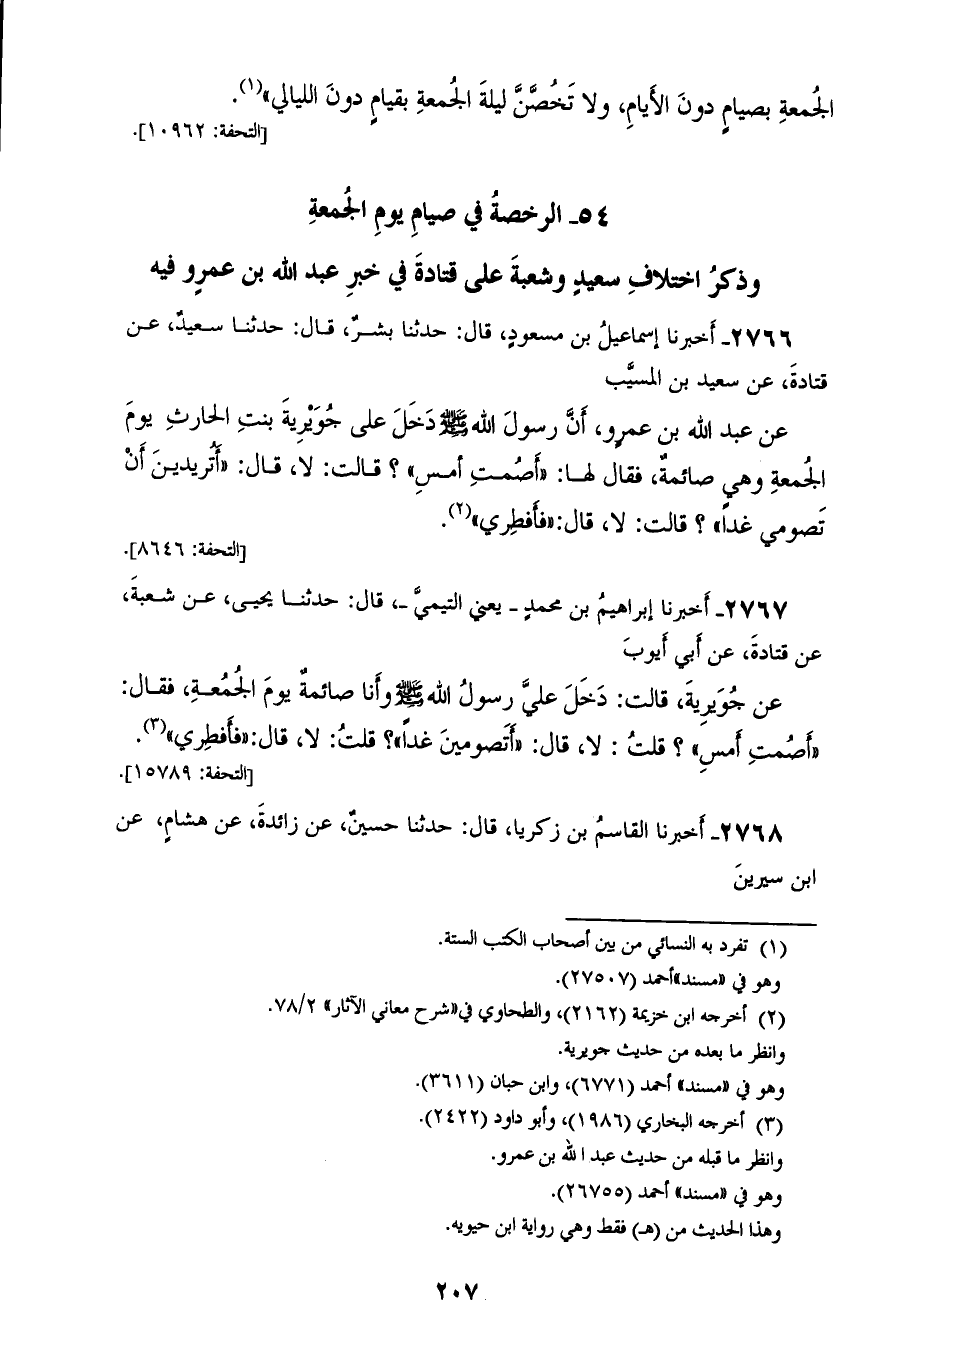 الجُمعةِ بصيامٍ دونَ الأيامِ، ولا تَخُصَّنَّ ليلةَ الجُمعةِ بقيامٍ دونَ الليالي»(١).
[التحفة: ١٠٩٦٢].
٥٤ـ الرخصةُ في صيامِ يومِ الجُمعةِ
وذكرُ اختلافِ سعيدٍ وشعبةَ على قتادةَ في خبرِ عبد الله بن عمرٍو فيه
٢٧٦٦ـ أَخبرنا إسماعيلُ بن مسعودٍ، قال: حدثنا بشـرٌ، قـال: حدثنـا سـعيدٌ، عـن
قتادةَ، عن سعيد بن المسيَّب
عن عبد الله بن عمرٍو، أَنَّ رسولَ الله ﷺ دَخَلَ على جُوَيْرِيةَ بنتِ الحارثِ يومَ
الجُمعةِ وهي صائمةٌ، فقال لهـا: «أَصُمْـتِ أمـسِ» ؟ قـالت: لا، قـال: «أَتُريديـنَ أَنْ
تَصومي غداً» ؟ قالت: لا، قال:«فأَفطِري»(٢).
[التحفة: ٨٦٤٦].
٢٧٦٧ـ أَخبرنا إبراهيمُ بن محمدٍ ـ يعني التيميَّ ـ، قال: حدثنـا يحيى، عـن شـعبةَ،
عن قتادةَ، عن أَبي أَيوبَ
عن جُوَيرِيةَ، قالت: دَخَلَ عليَّ رسولُ الله ﷺ وأَنا صائمةٌ يومَ الجُمُعـةِ، فقـال:
«أَصُمتِ أَمسِ» ؟ قلتُ : لا، قال: «أَتَصومينَ غداً»؟ قلتُ: لا، قال:«فأَفطِري»(٣).
[التحفة: ١٥٧٨٩].
٢٧٦٨ـ أَخبرنا القاسمُ بن زكريا، قال: حدثنا حسينٌ، عن زائدةَ، عن هشامٍ، عن
ابن سيرينَ
(١) تفرد به النسائي من بين أصحاب الكتب الستة.
وهو في «مسند»أحمد (٢٧٥٠٧).
(٢) أخرجه ابن خزيمة (٢١٦٢)، والطحاوي في«شرح معاني الآثار» ٧٨/٢.
وانظر ما بعده من حديث جويرية.
وهو في «مسند» أحمد (٦٧٧١)، وابن حبان (٣٦١١).
(٣) أخرجه البخاري (١٩٨٦)، وأبو داود (٢٤٢٢).
وانظر ما قبله من حديث عبد الله بن عمرو.
وهو في «مسند» أحمد (٢٦٧٥٥).
وهذا الحديث من (هـ) فقط وهي رواية ابن حيويه.
٢٠٧